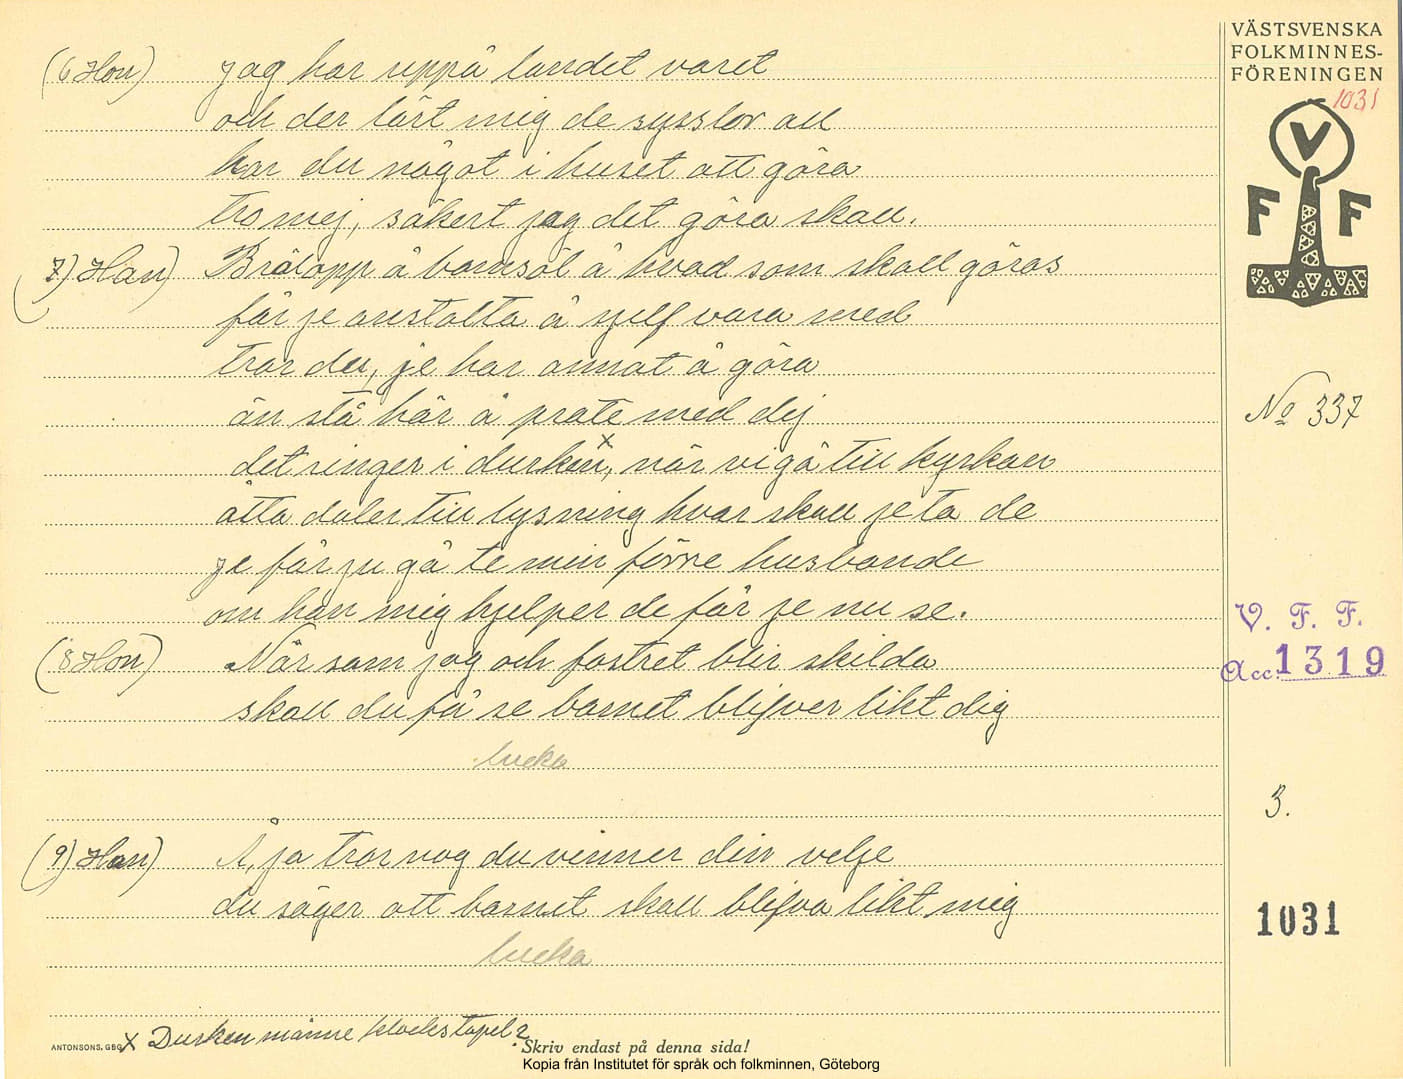 (6 Hon) Jag har uppå landet varet
och der lärt mig de sysslor all
har du något i huset att göra
tro mej, säkert jag det göra skall.
7) Han) Brölopp å barnsöl å hvad som skall göras
får je anstalta å sjelf vara med
tror du, je har annat å göra
än stå här å prate med dej
det ringer i durken x, när vi gå till kyrkan
åtta daler till lysning hvar skall je ta de
je får ju gå te min förre husbonde
om han mig hjelper de får je nu se.
(8 Hon) När som jag och fostret blir skilda
skall du få se barnet blifver likt dig
lucka
(9) Han) Å, ja tror nog du vinner din velje
du säger att barnet skall blifva likt mig
lucka
x Durken månne klockstapel?
ANTONSONS, GBG
Skriv endast på denna sida!
Kopia från Institutet för språk och folkminnen, Göteborg
VÄSTSVENSKA
FOLKMINNES-
FÖRENINGEN
1031
V
F F
No 337
V. F. F.
Acc. 1319
3.
1031